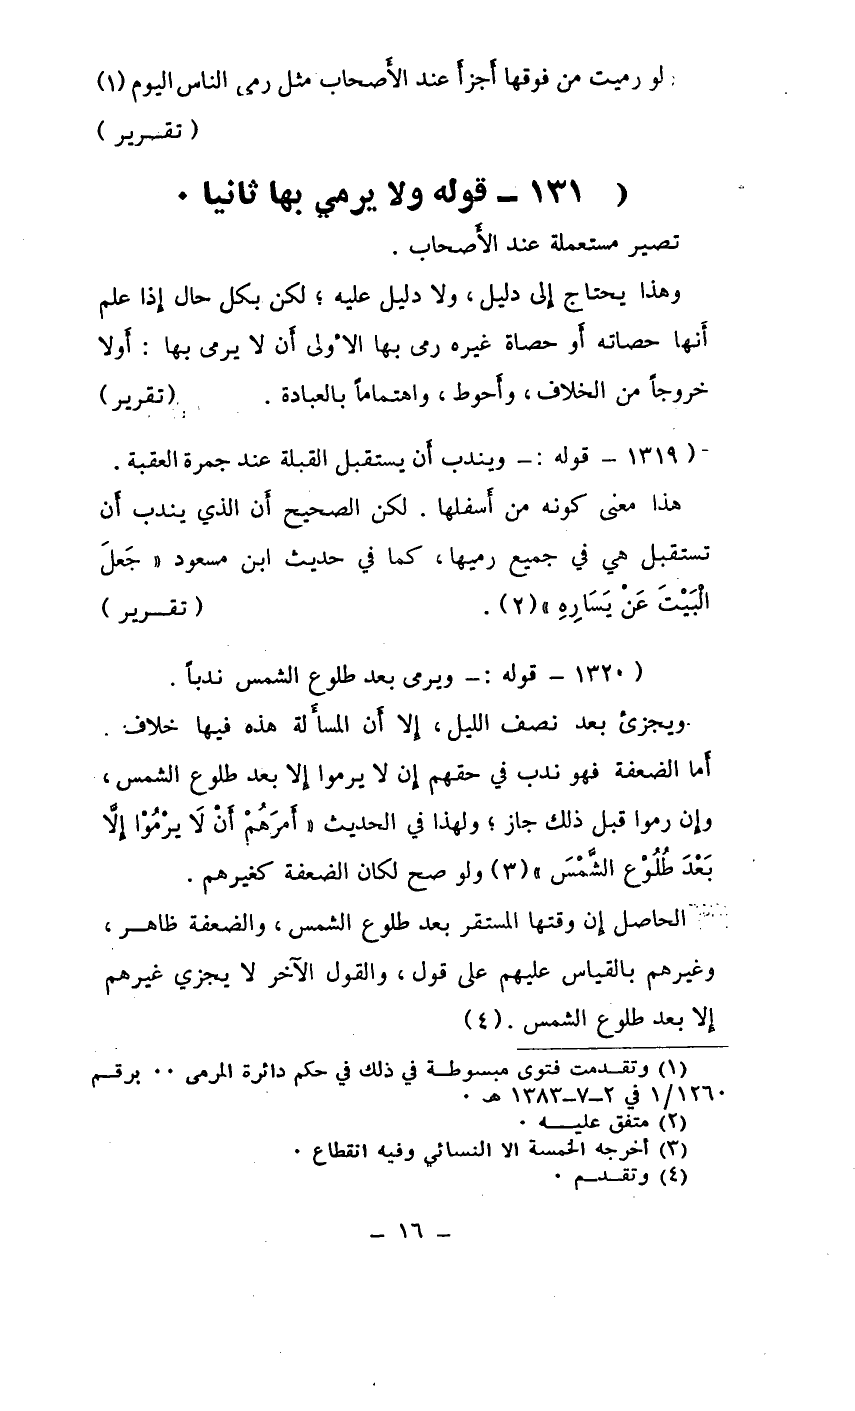 لو رميت من فوقها أجزأ عند الأصحاب مثل رمى الناس اليوم (١)
( تقـرير )
( ١٣١ – قوله ولا يرمي بها ثانيا ٠
تصير مستعملة عند الأصحاب .
وهذا يحتاج إلى دليل ، ولا دليل عليه ؛ لكن بكل حال إذا علم
أنها حصاته أو حصاة غيره رمى بها الاولى أن لا يرمى بها : أولا
خروجاً من الخلاف ، وأحوط ، واهتماماً بالعبادة . (تقرير)
( ١٣١٩ – قوله :– ويندب أن يستقبل القبلة عند جمرة العقبة .
هذا معنى كونه من أسفلها . لكن الصحيح أن الذي يندب أن
تستقبل هي في جميع رميها ، كما في حديث ابن مسعود « جَعلَ
الْبَيْتَ عَنْ يَسَارِهِ »(٢) . ( تقــرير )
( ١٣٢٠ – قوله :– ويرمى بعد طلوع الشمس ندباً .
ويجزئ بعد نصف الليل ، إلا أن المسألة هذه فيها خلاف .
أما الضعفة فهو ندب في حقهم إن لا يرموا إلا بعد طلوع الشمس ،
وإن رموا قبل ذلك جاز ؛ ولهذا في الحديث « أَمرَهُمْ أَنْ لَا يرْمُوْا إلَّا
بَعْدَ طُلُوْعِ الشَّمْسَ »(٣) ولو صح لكان الضعفة كغيرهم .
الحاصل إن وقتها المستقر بعد طلوع الشمس ، والضعفة ظاهـر ،
وغيرهم بالقياس عليهم على قول ، والقول الآخر لا يجزي غيرهم
إلا بعد طلوع الشمس . (٤)
(١) وتقـدمت فتوى مبسوطـة في ذلك في حكم دائرة المرمى ٠٠ برقـم
١/١٢٦٠ في ٢–٧–١٣٨٣ هـ ٠
(٢) متفق عليــه ٠
(٣) أخرجه الخمسة الا النسائي وفيه انقطاع ٠
(٤) وتقـدـم ٠
– ١٦ –